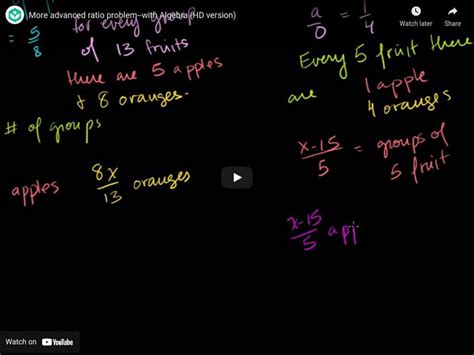 More advanced ratio problem--with Algebra (HD version)
Watch later
Share
= 5/8
for every group
of 13 fruits
there are 5 apples
+ 8 oranges.
# of groups
apples 8x/13 oranges
a/0 = 1/4
Every 5 fruit there
are 1 apple
4 oranges
x-15/5 = groups of
5 fruit
x-15/5 app
Watch on YouTube